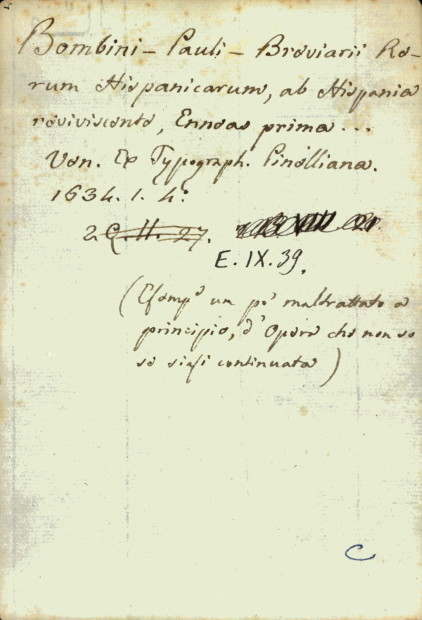 Bombini - Pauli - Breviarii Re-
rum Hispanicarum, ab Hispania
reviviscente, Enneas prima...
Ven. Ex Typograph. Pinelliana.
1634. 1. 4.º
2. C. II. 27.
E. IX. 39.
(Esemp.e un pò maltrattato a
principio, d'Opera che non so
se siasi continuata)
C